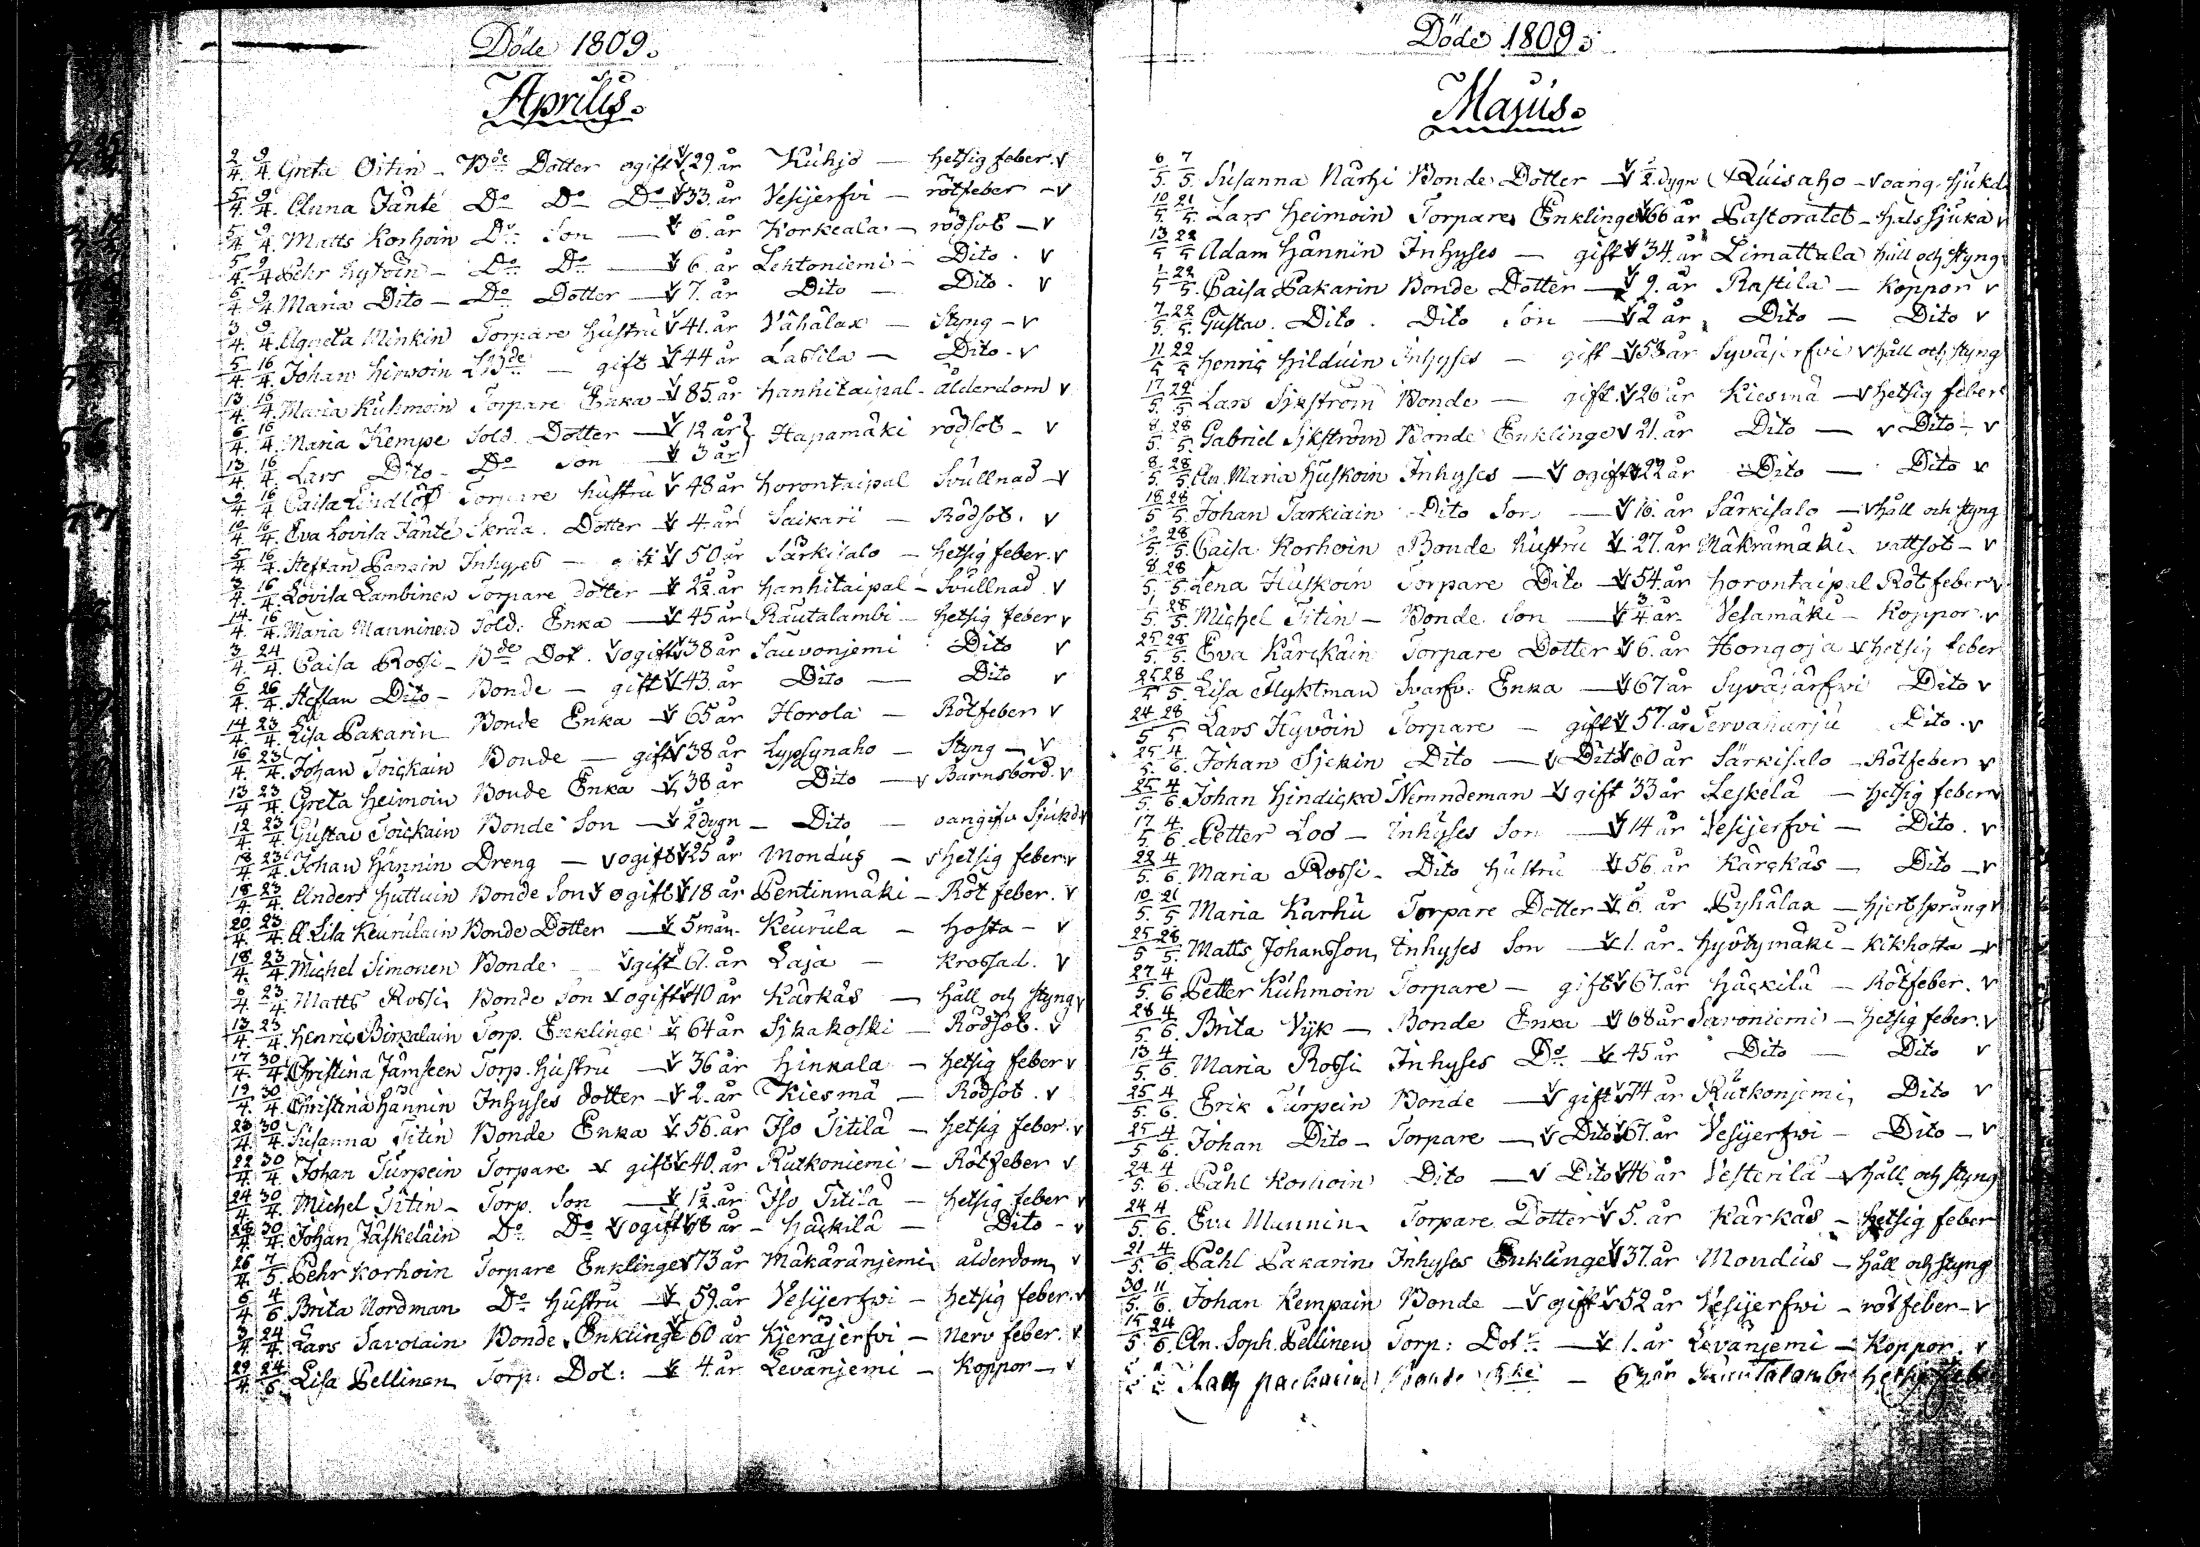 Döde 1809.
Aprilis.
2/4. 9/4. Greta Oitin - Bde Dotter ogift 29. år Kuhjo - hetsig feber. v
5/4. 9/4. Anna Jänte Do Do Do 33. år Vesijerfvi - rötfeber - v
5/4. 9/4. Matts Korhoin Do Son - 6. år Korkeala - rödsot - v
5/4. 9/4. Pehr Hytöin - Do Do - 6. år Lehtoniemi - Dito. v
6/4. 9/4. Maria Dito - Do Dotter - 7. år Dito - Dito. v
3/4. 9/4. Agneta Minkin Torpare hustru 41. år Vähälax - Styng - v
5/4. 16/4. Johan Hirwoin - gift 44 år Lassila - Dito - v
13/4. 16/4. Maria Kuhmoin Torpare Enka - 85. år Hanhitaipal - ålderdom v
6/4. 16/4. Maria Kempe Sold. Dotter - 12 år Hapamäki rödsot - v
13/4. 16/4. Lars Dito - Do Son - 3 år
9/4. 16/4. Caisa Lindlöf Torpare hustru v 48 år Horontaipal Svullnad - v
10/4. 16/4. Eva Lovisa Jänte Skräd. Dotter - 4. år Saikari - Rödsot. v
5/4. 16/4. Steffan Pansin Inhyses - gift 50 år Särkisalo - hetsig feber. v
3/4. 16/4. Lovisa Lambinen Torpare Dotter - 2 1/2 år Hanhitaipal - Svullnad v
14/4. 16/4. Maria Manninen Sold. Enka - 45 år Rautalambi - hetsig feber v
3/4. 24/4. Caisa Rossi - Bde Dot. v ogift 38 år Sauvonjemi Dito v
6/4. 26/4. Steffan Dito - Bonde - gift 43. år Dito - Dito v
14/4. 23/4. Lisa Pakarin Bonde Enka - 65 år Horola - Rötfeber v
16/4. 23/4. Johan Toickain Bonde - gift 38 år Lypsynaho - Styng - v
13/4. 23/4. Greta Heimoin Bonde Enka - 38 år Dito - v Barnsbörd. v
12/4. 23/4. Gustav Toickain Bonde Son - 2 dygn - Dito - oangifv Sjukd v
18/4. 23/4. Johan Hännin Dreng - v ogift 25 år Mondus - v hetsig feber v
18/4. 23/4. Anders Huttuin Bonde Son v ogift 18 år Pentinmäki - Röt feber. v
20/4. 23/4. A. Lisa Keurulain Bonde Dotter - 5 mån. Keurula - Hosta - v
18/4. 23/4. Michel Simonen Bonde - v gift 61. år Laja - Krossad. v
6/4. 23/4. Matts Rossi Bonde Son v ogift 40 år Kärkäs - håll och styng v
13/4. 23/4. Henric Pirkalain Torp. Enklinge 64 år Sikakoski - Rödsot. v
17/4. 30/4. Christina Jämseen Torp. hustru - 36 år Hinkala - hetsig feber v
19/4. 30/4. Christina Hännin Inhyses Dotter - 2. år Kiesmä - Rödsot. v
23/4. 30/4. Susanna Titin Bonde Enka 56. år Iso Titilä - hetsig feber. v
22/4. 30/4. Johan Turpein Torpare v gift 40. år Rutkoniemi - Rötfeber v
24/4. 30/4. Michel Titin - Torp. Son - 1 1/2 år Iso Titilä - hetsig feber v
28/4. 30/4. Johan Jäskeläin Do Do v ogift 18 år - Häckilä - Dito - v
26/4. 7/5. Pehr Korhoin Torpare Enklinge 73 år Mäkäränjemi ålderdom v
6/4. 4/6. Brita Nordman Do hustru - 59. år Vesijerfvi - hetsig feber. v
3/4. 24/4. Lars Savolain Bonde Enklinge 60 år Kieräjerfvi - Nerv feber. v
29/4. 24/6. Lisa Pellinen Torp. Dot: - 4 år Levänjemi - Koppor - v
Döde 1809.
Majus.
6/5. 7/5. Susanna Närhi Bonde Dotter - 2. dygn Ruisaho - v oang. sjukd.
10/5. 21/5. Lars Heimoin Torpare Enklinge 66 år Pastoratet - Halssjuka v
13/5 22/5 Adam Hännin Inhyses - gift 34. år Limattala håll och styng
1/5 22/5. Caisa Pakarin Bonde Dotter - 9. år Rastila - Koppor v
7/5. 22/5. Gustav. Dito. Dito Son - 2 år Dito - Dito v
11/5 22/5 Henric Hilduin Inhyses - gift 53 år Syväjerfvi v håll och styng
17/5. 22/5 Lars Sykström Bonde - gift. 26 år Kiesmä - v hetsig feber
8/5. 28/5. Gabriel Sykström Bonde Enklinge 21. år Dito - v Dito - v
8/5. 28/5. An. Maria Huskoin Inhyses - v ogift 22 år Dito - Dito v
18/5 28/5. Johan Tarkiain Dito Son - 16. år Särkisalo - v håll och styng
28/5. Caisa Korhoin Bonde hustru 27. år Mäkrämäki vattsot - v
8/5. 28/5. Lena Huskoin Torpare Dito - 54 år Horontaipal Rötfeber v
28/5. Michel Titin - Bonde Son - 3/4 år Vesamäki - Koppor v
25/5. 28/5. Eva Kärckäin Torpare Dotter 6. år Hongoja v hetsig feber
25/5 28/5. Lisa Flyktman Svarfv. Enka - 67 år Syväjärfwi Dito v
24/5 28/5 Lars Hyvöin Torpare - gift 57. år Tervaharju Dito. v
25/5. 4/6. Johan Sickin Dito - v Dito 60 år Särkisalo - Rötfeber v
25/5. 4/6. Johan Hindicka Nemndeman v gift 33 år Leskelä - hetsig feber v
17/5. 4/6. Petter Loo - Inhyses Son - 14 år Vesijerfvi - Dito. v
22/5. 4/6. Maria Rossi - Dito hustru 56. år Kärckäs - Dito - v
10/5. 21/5 Maria Karhu Torpare Dotter 6. år Pyhälax - hjertsprång v
25/5 28/5. Matts Johansson Inhyses Son - 1. år - Hyvtymäki - kikhosta - v
27/5. 4/6 Petter Kuhmoin Torpare - gift v 67. år Häckilä - Rötfeber. v
28/5 4/6. Brita Vijk - Bonde Enka - 68 år Savoniemi - hetsig feber. v
13/5. 4/6. Maria Rossi Inhyses Do 45 år Dito - Dito v
25/5. 4/6. Erik Turpein Bonde - v gift v 74 år Rutkonjemi, Dito v
25/5. 4/6. Johan Dito - Torpare - v Dito 67. år Vesijerfwi - Dito - v
24/5. 4/6. Påhl Korhoin Dito - v Dito 46 år Vesterilä - v håll och styng
24/5. 4/6. Eva Munnin Torpare Dotter v 5. år Kärkäs - hetsig feber
21/5. 4/6. Påhl Pakarin Inhyses Enklinge v 37. år Mondus - håll och styng
30/5. 11/6. Johan Kempain Bonde - v gift v 52 år Vesijerfwi - rötfeber - v
15/5 24/6. An. Soph. Pellinen Torp: Dotr - 1. år Levänjemi - Koppor. v
Bonde - år hetsig feber